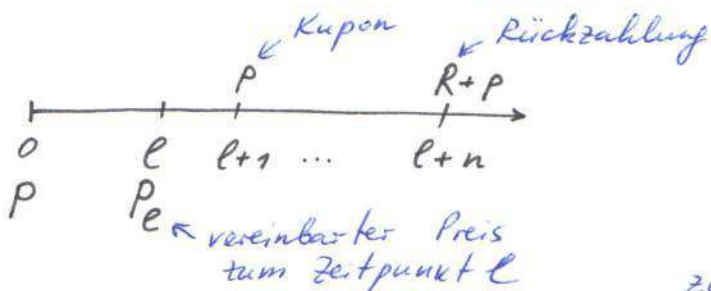 Kupon Rückzahlung
p R+p
0 l l+1 ... l+n
P P_l vereinbarter Preis
zum Zeitpunkt l